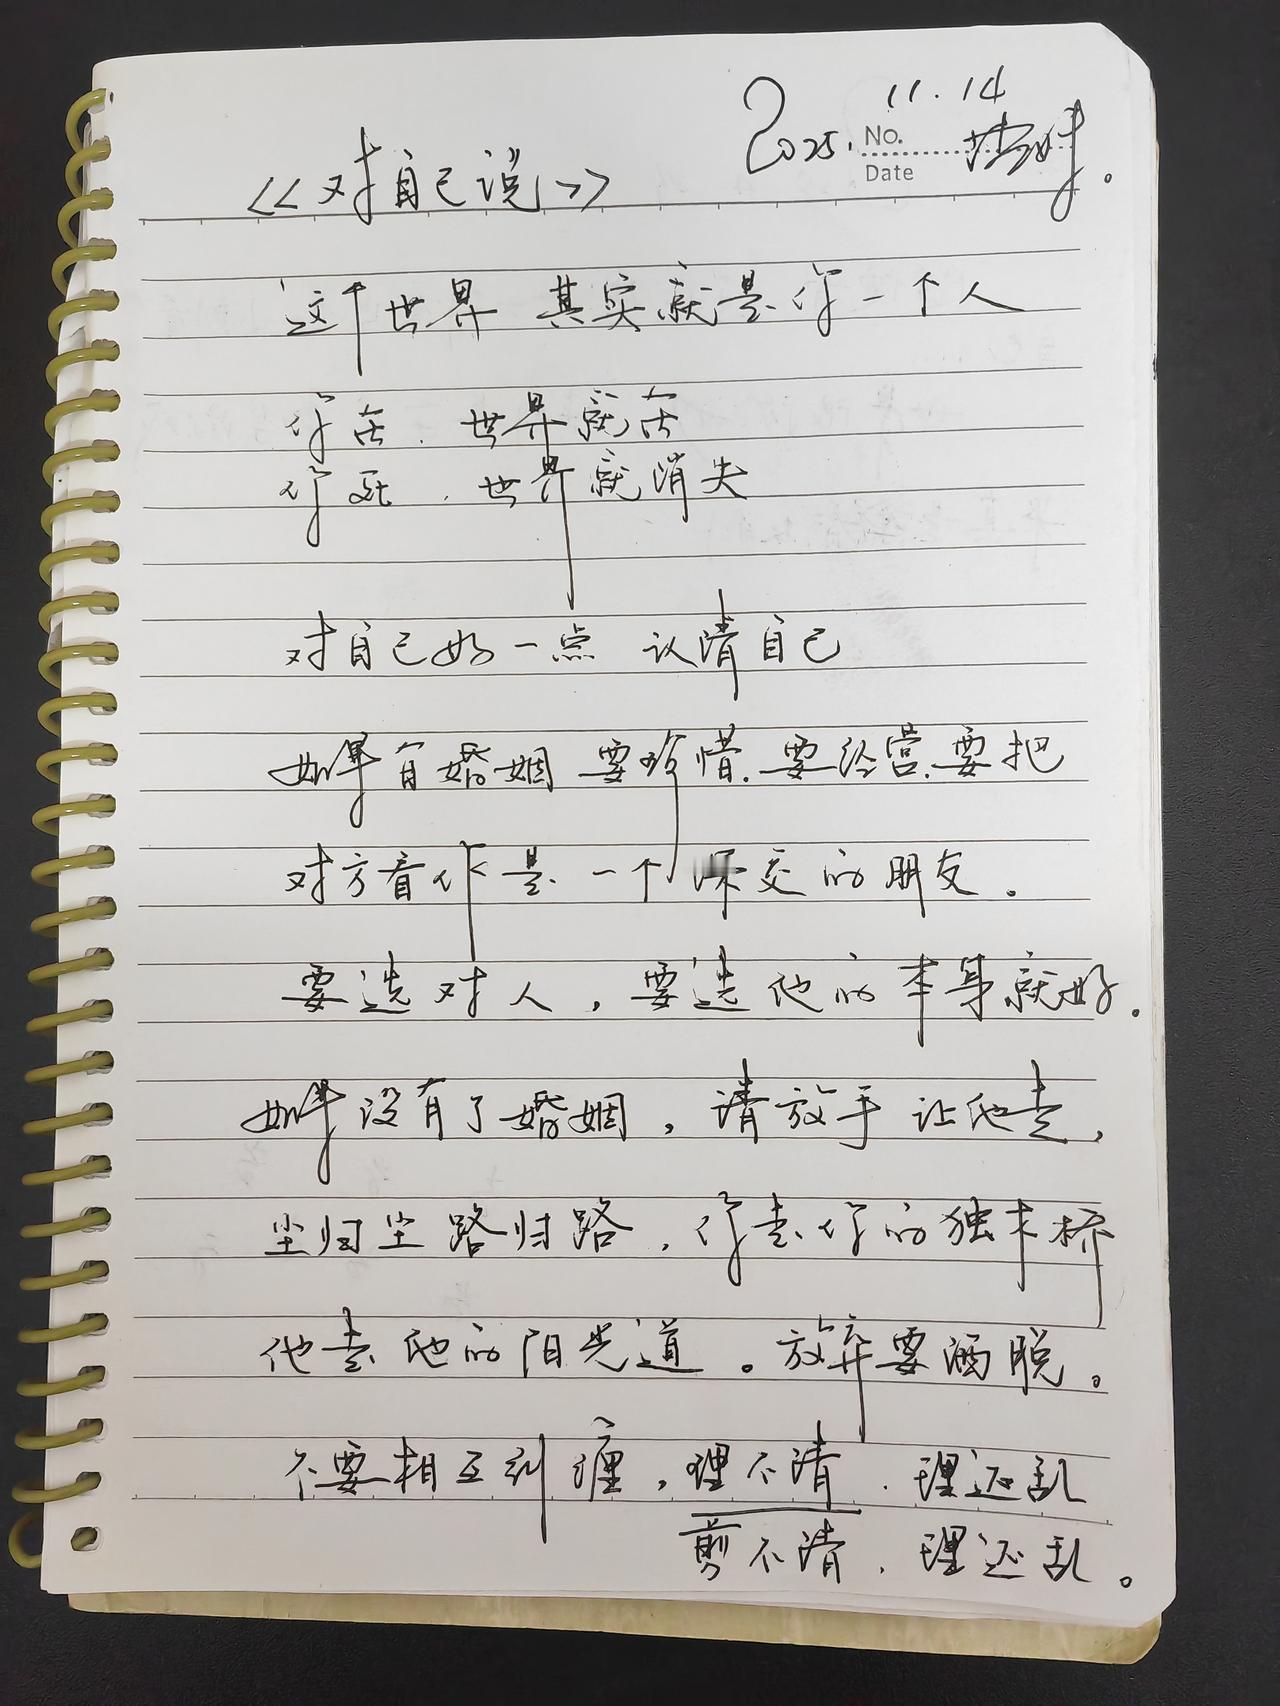 2025. 11.14
No.
Date
<<对自己说>>
这个世界 其实就是你一个人
你在. 世界就在
你死. 世界就消失
对自己好一点 认清自己
如果有婚姻 要珍惜.要经营.要把
对方看作是一个深交的朋友。
要选对人，要选他的本身就好。
如果没有了婚姻，请放手让他走，
尘归尘路归路，你走你的独木桥
他走他的阳光道。放弃要洒脱。
不要相互纠缠，理不清.理还乱
剪不清.理还乱。